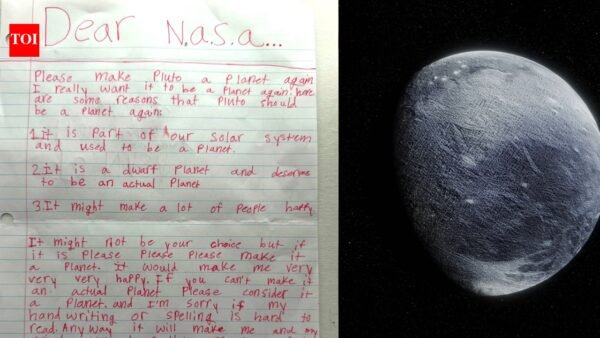 TOI
Dear N.a.s.a...
Please make Pluto a Planet again
I really want it to be a Planet again. here
are some reasons that Pluto should
be a Planet again:
1. it is Part of our solar system
and used to be a Planet.
2. it is a dwarf Planet and deserves
to be an actual Planet
3. It might make a lot of People happy
It might not be your choice but if
it is Please Please Please make it
a Planet. It would make me very
very very happy. If you can't make it
an actual Planet Please consider it
a Planet. and I'm sorry if my
hand writing or spelling is hard to
read. Any way it will make me and my